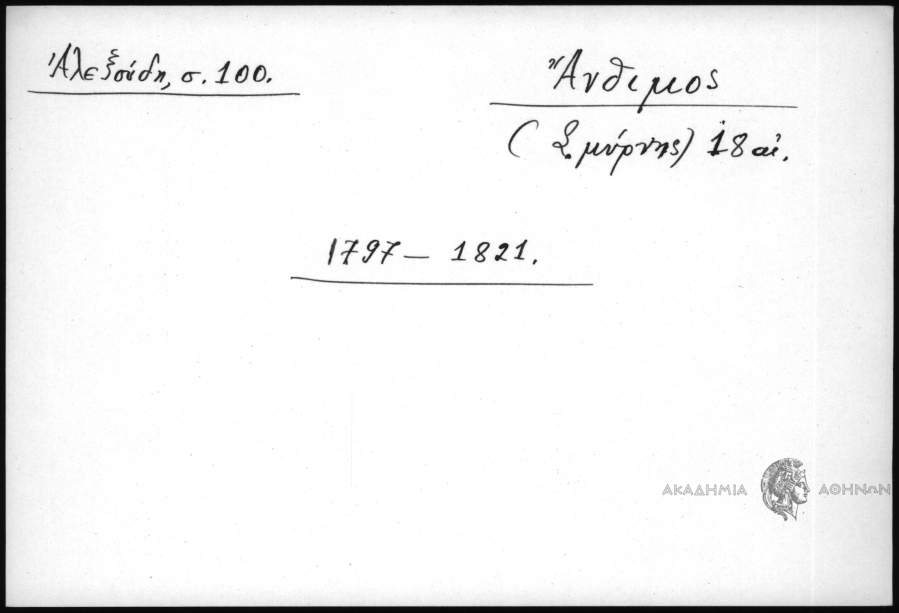 Ἀλεξούδη, σ. 100.
Ἄνθιμος
(Σμύρνης) 18 αἰ.
1797 – 1821.
ΑΚΑΔΗΜΙΑ ΑΘΗΝΩΝ